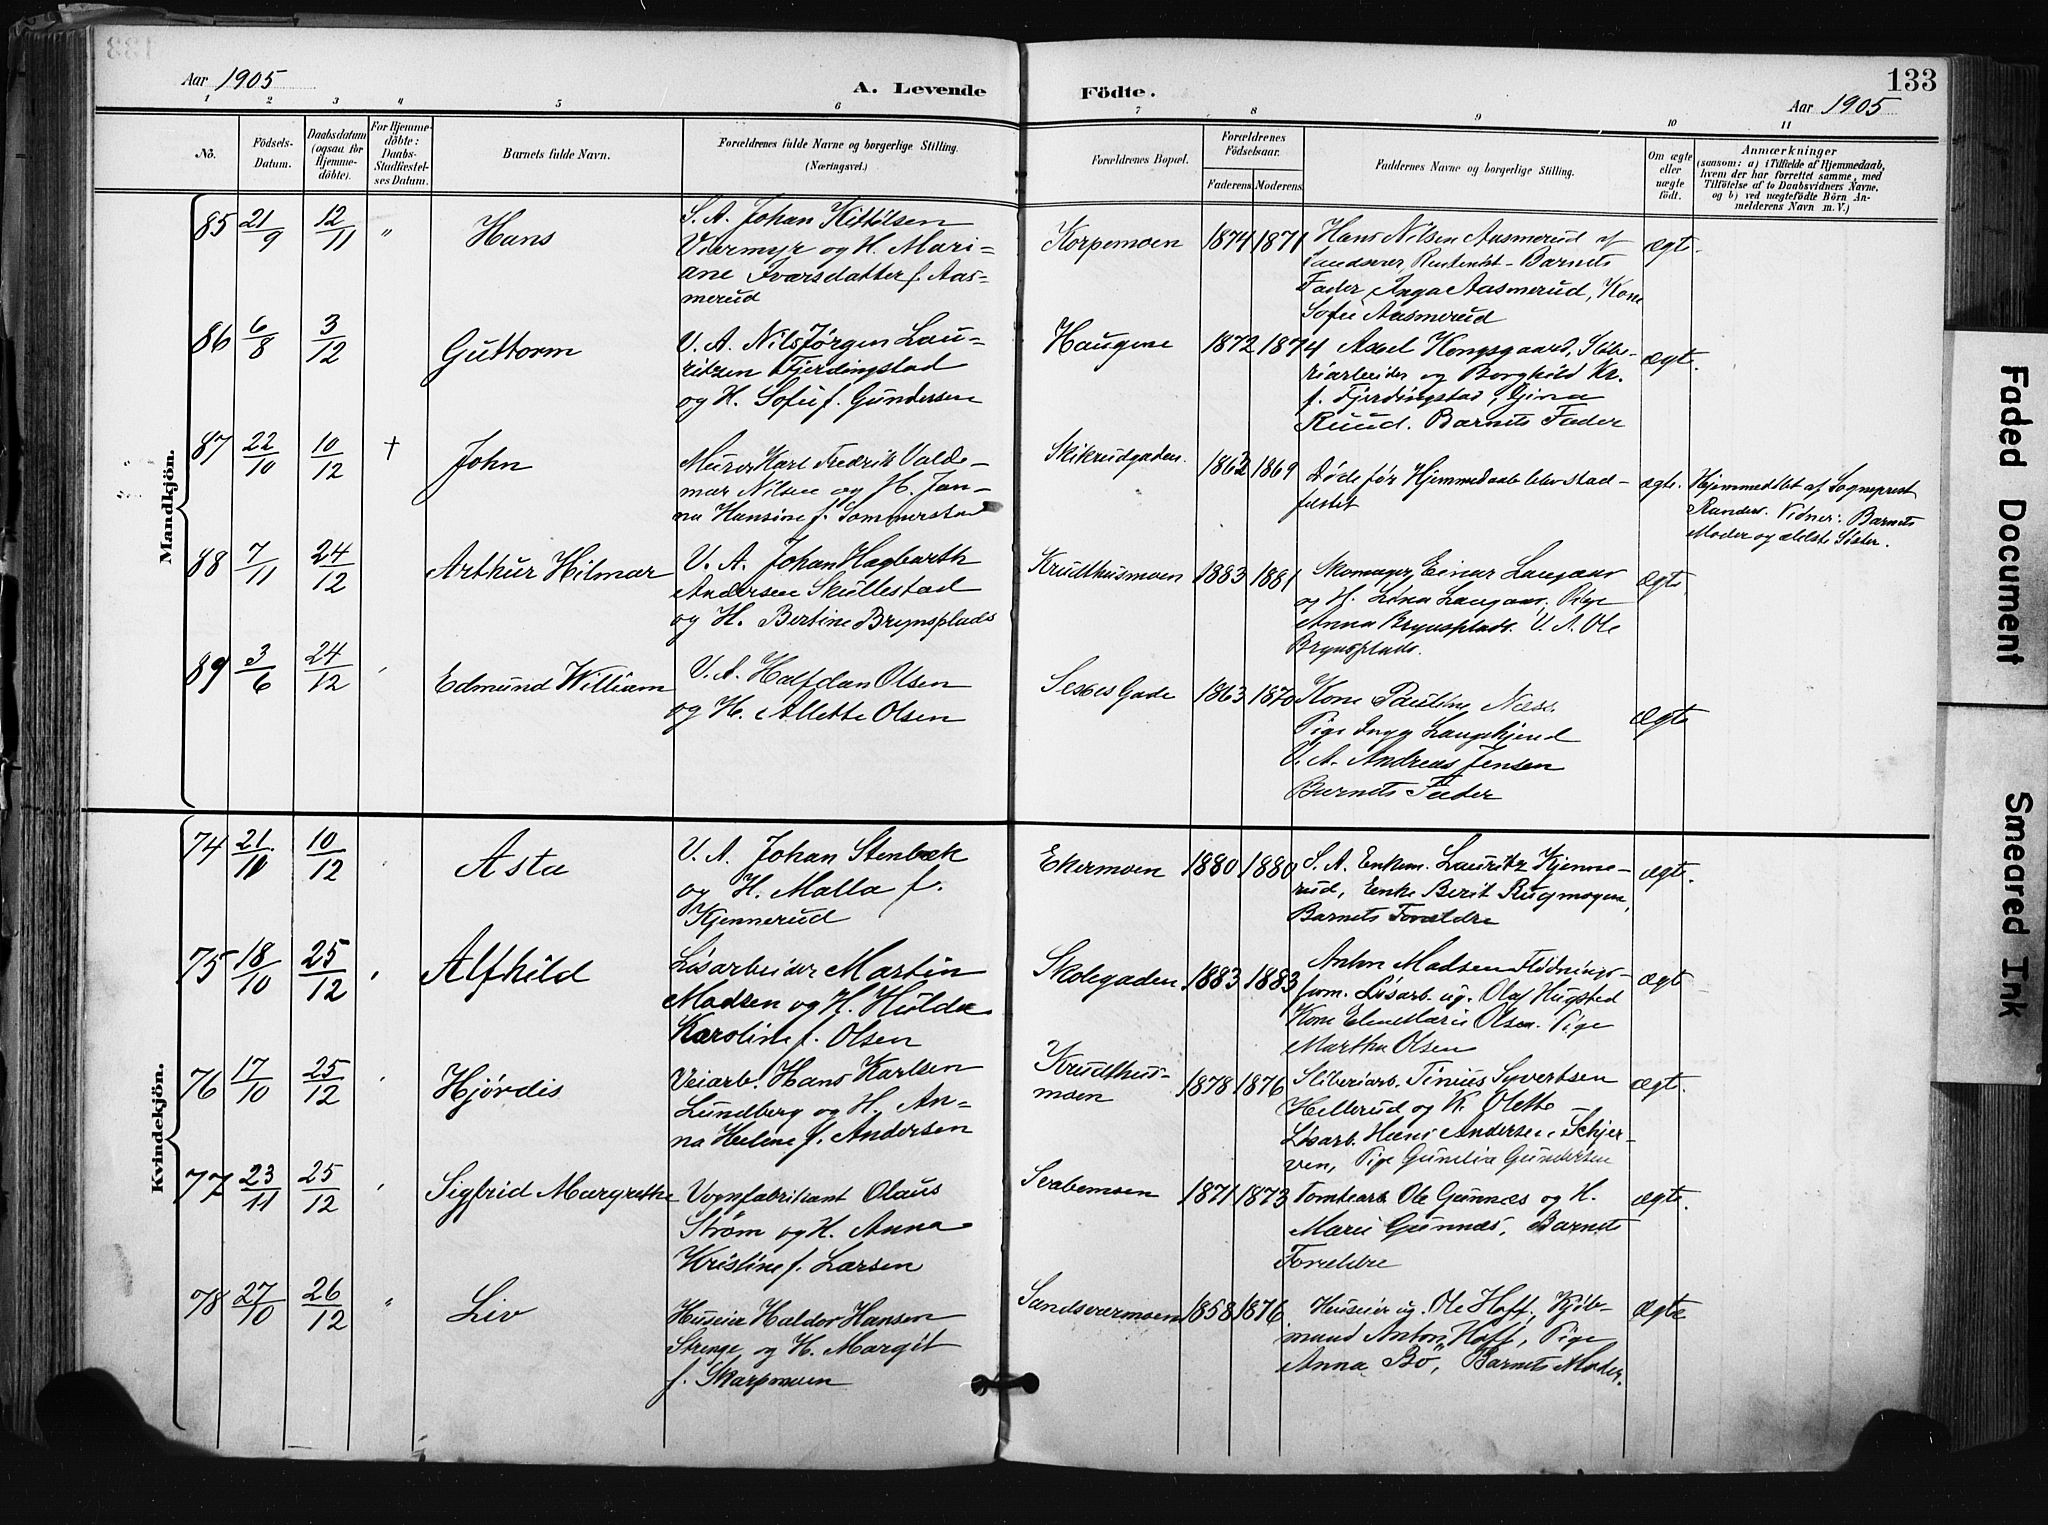 133
Aar 1905
A. Levende Födte.
Aar 1905
1 2 3 4 5 6 7 8 9 10 11
No.
Födsels-
Datum.
Daabsdatum
(ogsaa for
Hjemme-
döbte).
For Hjemme-
döbte:
Daabs-
Stadfæstel-
ses Datum.
Barnets fulde Navn.
Forældrenes fulde Navne og borgerlige Stilling.
(Næringsvei.)
Forældrenes Bopæl.
Forældrenes
Födselsaar.
Faderens. Moderens.
Faddernes Navne og borgerlige Stilling.
Om ægte
eller
uægte
födt.
Anmærkninger
(saasom: a) i Tilfælde af Hjemmedaab,
hvem der har forrettet samme, med
Tilföielse af to Daabsvidners Navne,
og b) ved uægtefödte Börn An-
melderens Navn m. V.)
Mandkjön.
85 21/9 12/11 " Hans
S. A. Johan Kittilsen
Vermyr og H. Mari-
ane Ivarsdatter f. Aas-
merud
Korpemoen 1874 1871
Hans Nilsen Aasmerud af
Sandsvær, Barnets
Fader, Inga Aasmerud, Kone
Sofie Aasmerud
ægt.
86 6/8 3/12 Guttorm
V. A. Nils Jørgen Lau-
ritzen Fjerdingstad
og H. Sofie f. Gundersen
Haugene 1872 1874
Axel Kongsgaard, Slibe-
riarbeider og Borghild Kr.
f. Fjerdingstad, Gina
Ruud. Barnets Fader
ægt.
87 22/10 10/12 † John
Murer Karl Fredrik Valde-
mar Nilsen og H. Jan-
na Hansine f. Sommerstad
Skikrudgaden. 1862 1869
Døde før Hjemmedaab blev stad-
fæstet
ægte.
Hjemmedøbt af Sogneprest
Randers. Vidner: Barnets
Moder og ældste Søster.
88 7/11 24/12 Arthur Hilmar
V. A. Johan Hagbarth
Andersen Skullestad
og H. Bertine Brynsplads
Krudthusmoen 1883 1881
Skomager Einar Langaas
og H. Lina Langaas. Pige
Anna Brynsplads. V. A. Ole
Brynsplads.
ægte
89 3/6 24/12 Edmund William
V. A. Halfdan Olsen
og H. Allette Olsen
Gade 1863 1870
Kone Pauline Næss.
Pige
V. A. Andreas Jensen
Barnets Fader
ægte
Kvindekjön.
74 21/10 10/12 Asta
V. A. Johan Stenbæk
og H. Malla f.
Kjennerud
Ekermoen 1880 1880
S. A. Enkem. Lauritz Kjenne-
rud, Enke Berit Rugmogen,
Barnets Forældre
ægte.
75 18/10 25/12 Alfhild
Løsarbeider Martin
Madsen og H. Hulda
Karoline f. Olsen
Skolegaden. 1883 1883
Anton Madsen Flødnings-
form. Løsarb. ug. Olaf Hugsted
Kone Elene Marie Olsen. Pige
Martha Olsen
ægt
76 17/10 25/12 Hjørdis
Veiarb. Hans Karlsen
Lundberg og H. An-
na Helene f. Andersen
Krudthus-
moen 1878 1876
Sliberiarb. Tinius Syvertsen
Hellerud og K. Olette
Løsarb. Hans Andersen Schjer-
ven, Pige Gunelia Gundersen
ægt.
77 23/11 25/12 Sigfrid Margrethe
Vognfabrikant Olaus
Strøm og H. Anna
Kristine f. Larsen
Skabemoen 1871 1873
Tomtearb. Ole Gunnæs og H.
Marie Gunnæs, Barnets
Forældre
ægte.
78 27/10 26/12 " Liv
Huseier Haldor Hansen
Strenge og H. Margit
f. Skarpmoen
Sandsværmoen 1858 1876
Huseier ug. Ole Hoff, Kjøb-
mand Anton Hoff, Pige
Anna Bö, Barnets Moder.
ægte
Faded Document
Smeared Ink